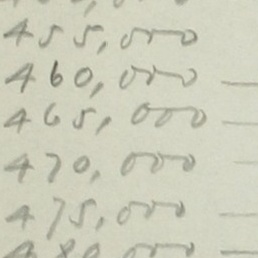 455,000
460,000 —
465,000 —
470,000 —
475,000 —
480,000 —